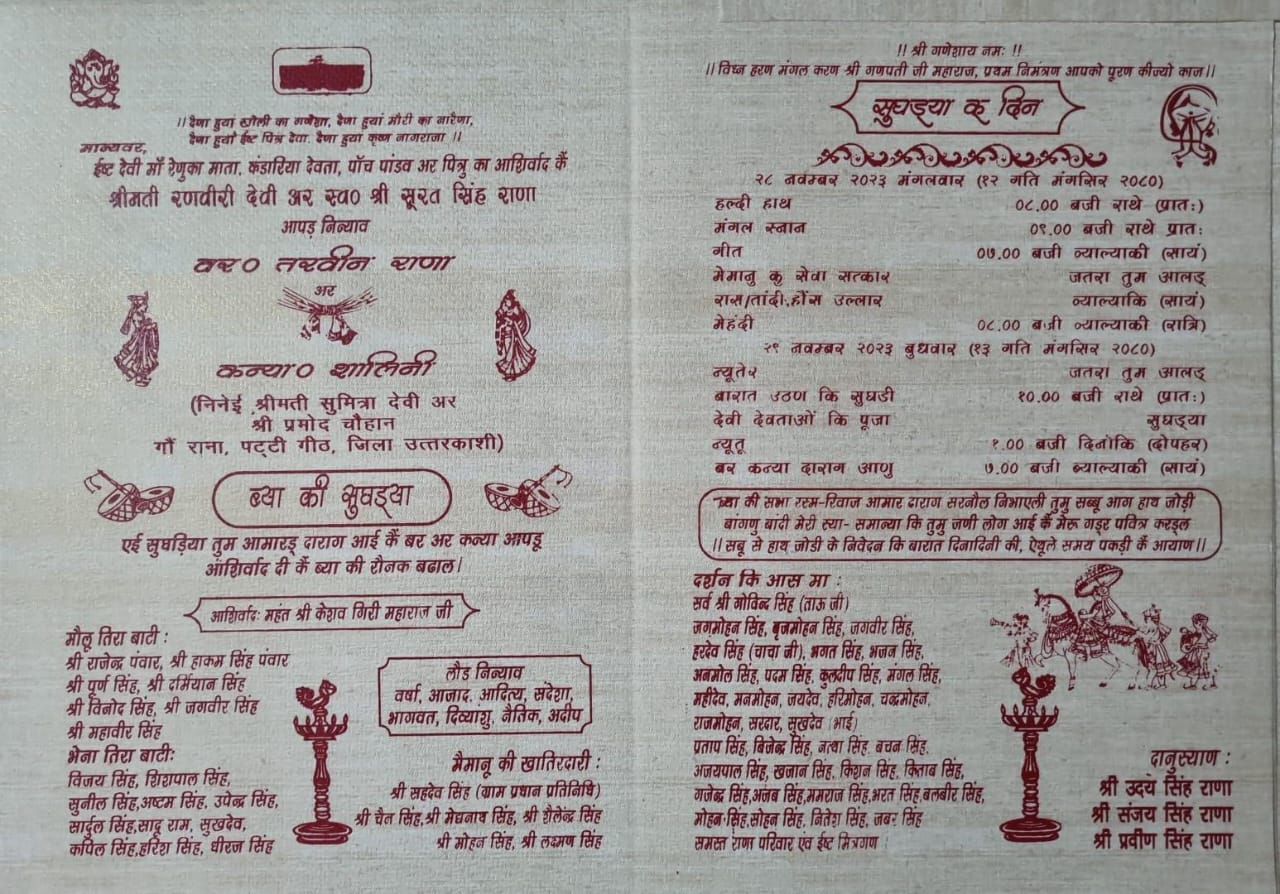 ।। दैणा हुयां खोली का गणेशा, दैणा हुयां मोरी का नारेणा,
दैणा हुयां ईष्ट पित्र देवा, दैणा हुयां कृष्ण नागराजा ।।
मान्यवर,
ईष्ट देवी माँ रेणुका माता, कंडारिया देवता, पाँच पांडव अर पित्रु का आशिर्वाद कैं
श्रीमती रणवीरी देवी अर स्व० श्री सूरत सिंह राणा
आपड़ निन्याव
वर० तरवीन राणा
अर
कन्या० शालिनी
(निनेई श्रीमती सुमित्रा देवी अर
श्री प्रमोद चौहान
गौं राना, पट्टी गीठ, जिला उत्तरकाशी)
ब्या की सुघड्या
एई सुघड़िया तुम आमारड् दाराग आई कैं बर अर कन्या आपडू
आंशिर्वाद दी कैं ब्या की रौनक बढाल।
आशिर्वादः महंत श्री केशव गिरी महाराज जी
मौलू तिरा बाटी :
श्री राजेन्द्र पंवार, श्री हाकम सिंह पंवार
श्री पूर्ण सिंह, श्री दर्मियान सिंह
श्री विनोद सिंह, श्री जगवीर सिंह
श्री महावीर सिंह
भेना तिरा बाटीः
विजय सिंह, शिशपाल सिंह,
सुनील सिंह,अष्टम सिंह, उपेन्द्र सिंह,
सार्दुल सिंह,सादू राम, सुखदेव,
कपिल सिंह,हरिश सिंह, धीरज सिंह
लौड निन्याव
वर्षा, आजाद, आदित्य, संदेश,
भागवत, दिव्यांशु, नैतिक, अदीप
मैमानू की खातिरदारी :
श्री सहदेव सिंह (ग्राम प्रधान प्रतिनिधि)
श्री चैन सिंह,श्री मेघनाथ सिंह, श्री शैलेन्द्र सिंह
श्री मोहन सिंह, श्री लक्ष्मण सिंह
!! श्री गणेशाय नमः !!
।। विघ्न हरण मंगल करण श्री गणपती जी महाराज, प्रथम निमंत्रण आपको पूरण कीज्यो काज।।
सुघड्या क दिन
२८ नवम्बर २०२३ मंगलवार (१२ गति मंगसिर २०८०)
हल्दी हाथ ०८.०० बजी राथे (प्रातः)
मंगल स्नान ०९.०० बजी राथे प्रातः
गीत ०७.०० बजी ब्याल्याकी (सायं)
मेमानु कु सेवा सत्कार जतरा तुम आलड्
रास/तांदी,हौंस उल्लार ब्याल्याकि (सायं)
मेहंदी ०८.०० बजी ब्याल्याकी (रात्रि)
२९ नवम्बर २०२३ बुधवार (१३ गति मंगसिर २०८०)
न्यूतेर जतरा तुम आलड्
बारात उठण कि सुघडी १०.०० बजी राथे (प्रातः)
देवी देवताओं कि पूजा सुघड्या
न्यूतू १.०० बजी दिनोकि (दोपहर)
बर कन्या दाराग आणु ७.०० बजी ब्याल्याकी (सायं)
ब्या की सभा रस्म-रिवाज आमार दाराग सरनौल निभाएली तुमु सब्बू आग हाथ जोड़ी
बांगणु बांदी मेरी स्या- समान्या कि तुमु जणी लोग आई कैं मेरू गड्र पवित्र करड्ल
।। सबू से हाथ जोडी के निवेदन कि बारात दिनादिनी की, ऐथूले समय पकड़ी कैं आयाण।।
दर्शन कि आस मा :
सर्व श्री गोविन्द सिंह (ताऊ जी)
जगमोहन सिंह, बृजमोहन सिंह, जगवीर सिंह,
हरदेव सिंह (चाचा जी), भगत सिंह, भजन सिंह,
अनमोल सिंह, पदम सिंह, कुलदीप सिंह, मंगल सिंह,
महीदेव, मनमोहन, जयदेव, हरिमोहन, चन्द्रमोहन,
राजमोहन, सरदार, सुखदेव (भाई)
प्रताप सिंह, बिजेन्द्र सिंह, नत्था सिंह, बचन सिंह,
अजयपाल सिंह, खजान सिंह, किशन सिंह, किताब सिंह,
गजेन्द्र सिंह,अजब सिंह,ममराज सिंह,भरत सिंह,बलबीर सिंह,
मोहन सिंह,सोहन सिंह, नितेश सिंह, जबर सिंह
समस्त राणा परिवार एंव ईष्ट मित्रगण
दानुस्याण :
श्री उदय सिंह राणा
श्री संजय सिंह राणा
श्री प्रवीण सिंह राणा